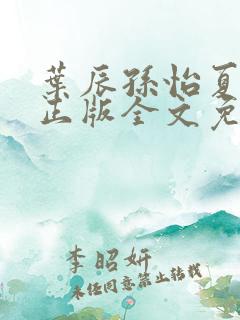 葉辰孫怡夏
正版全文免
李昭妍
未经同意禁止转载